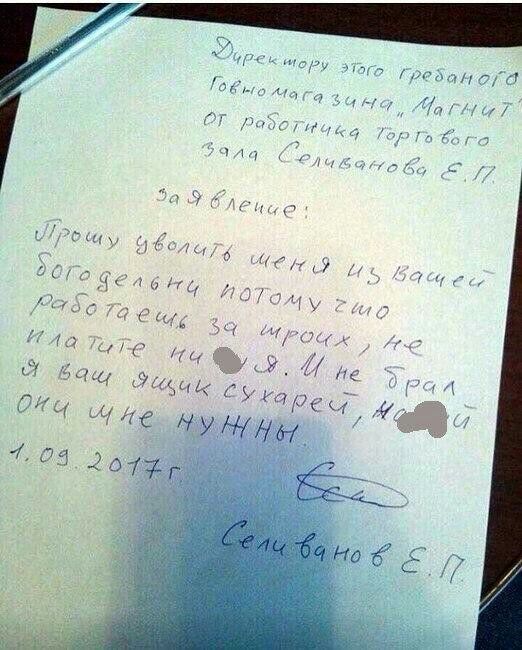 Директору этого гребаного
Говномагазина „Магнит"
от работника торгового
зала Селиванова Е.П.
заявление:
Прошу уволить меня из вашей
богодельни потому что
работаешь за троих, не
платите ни я. И не брал
я ваш ящик сухарей, на й
они мне нужны.
1.09.2017г.
Селиванов Е.П.